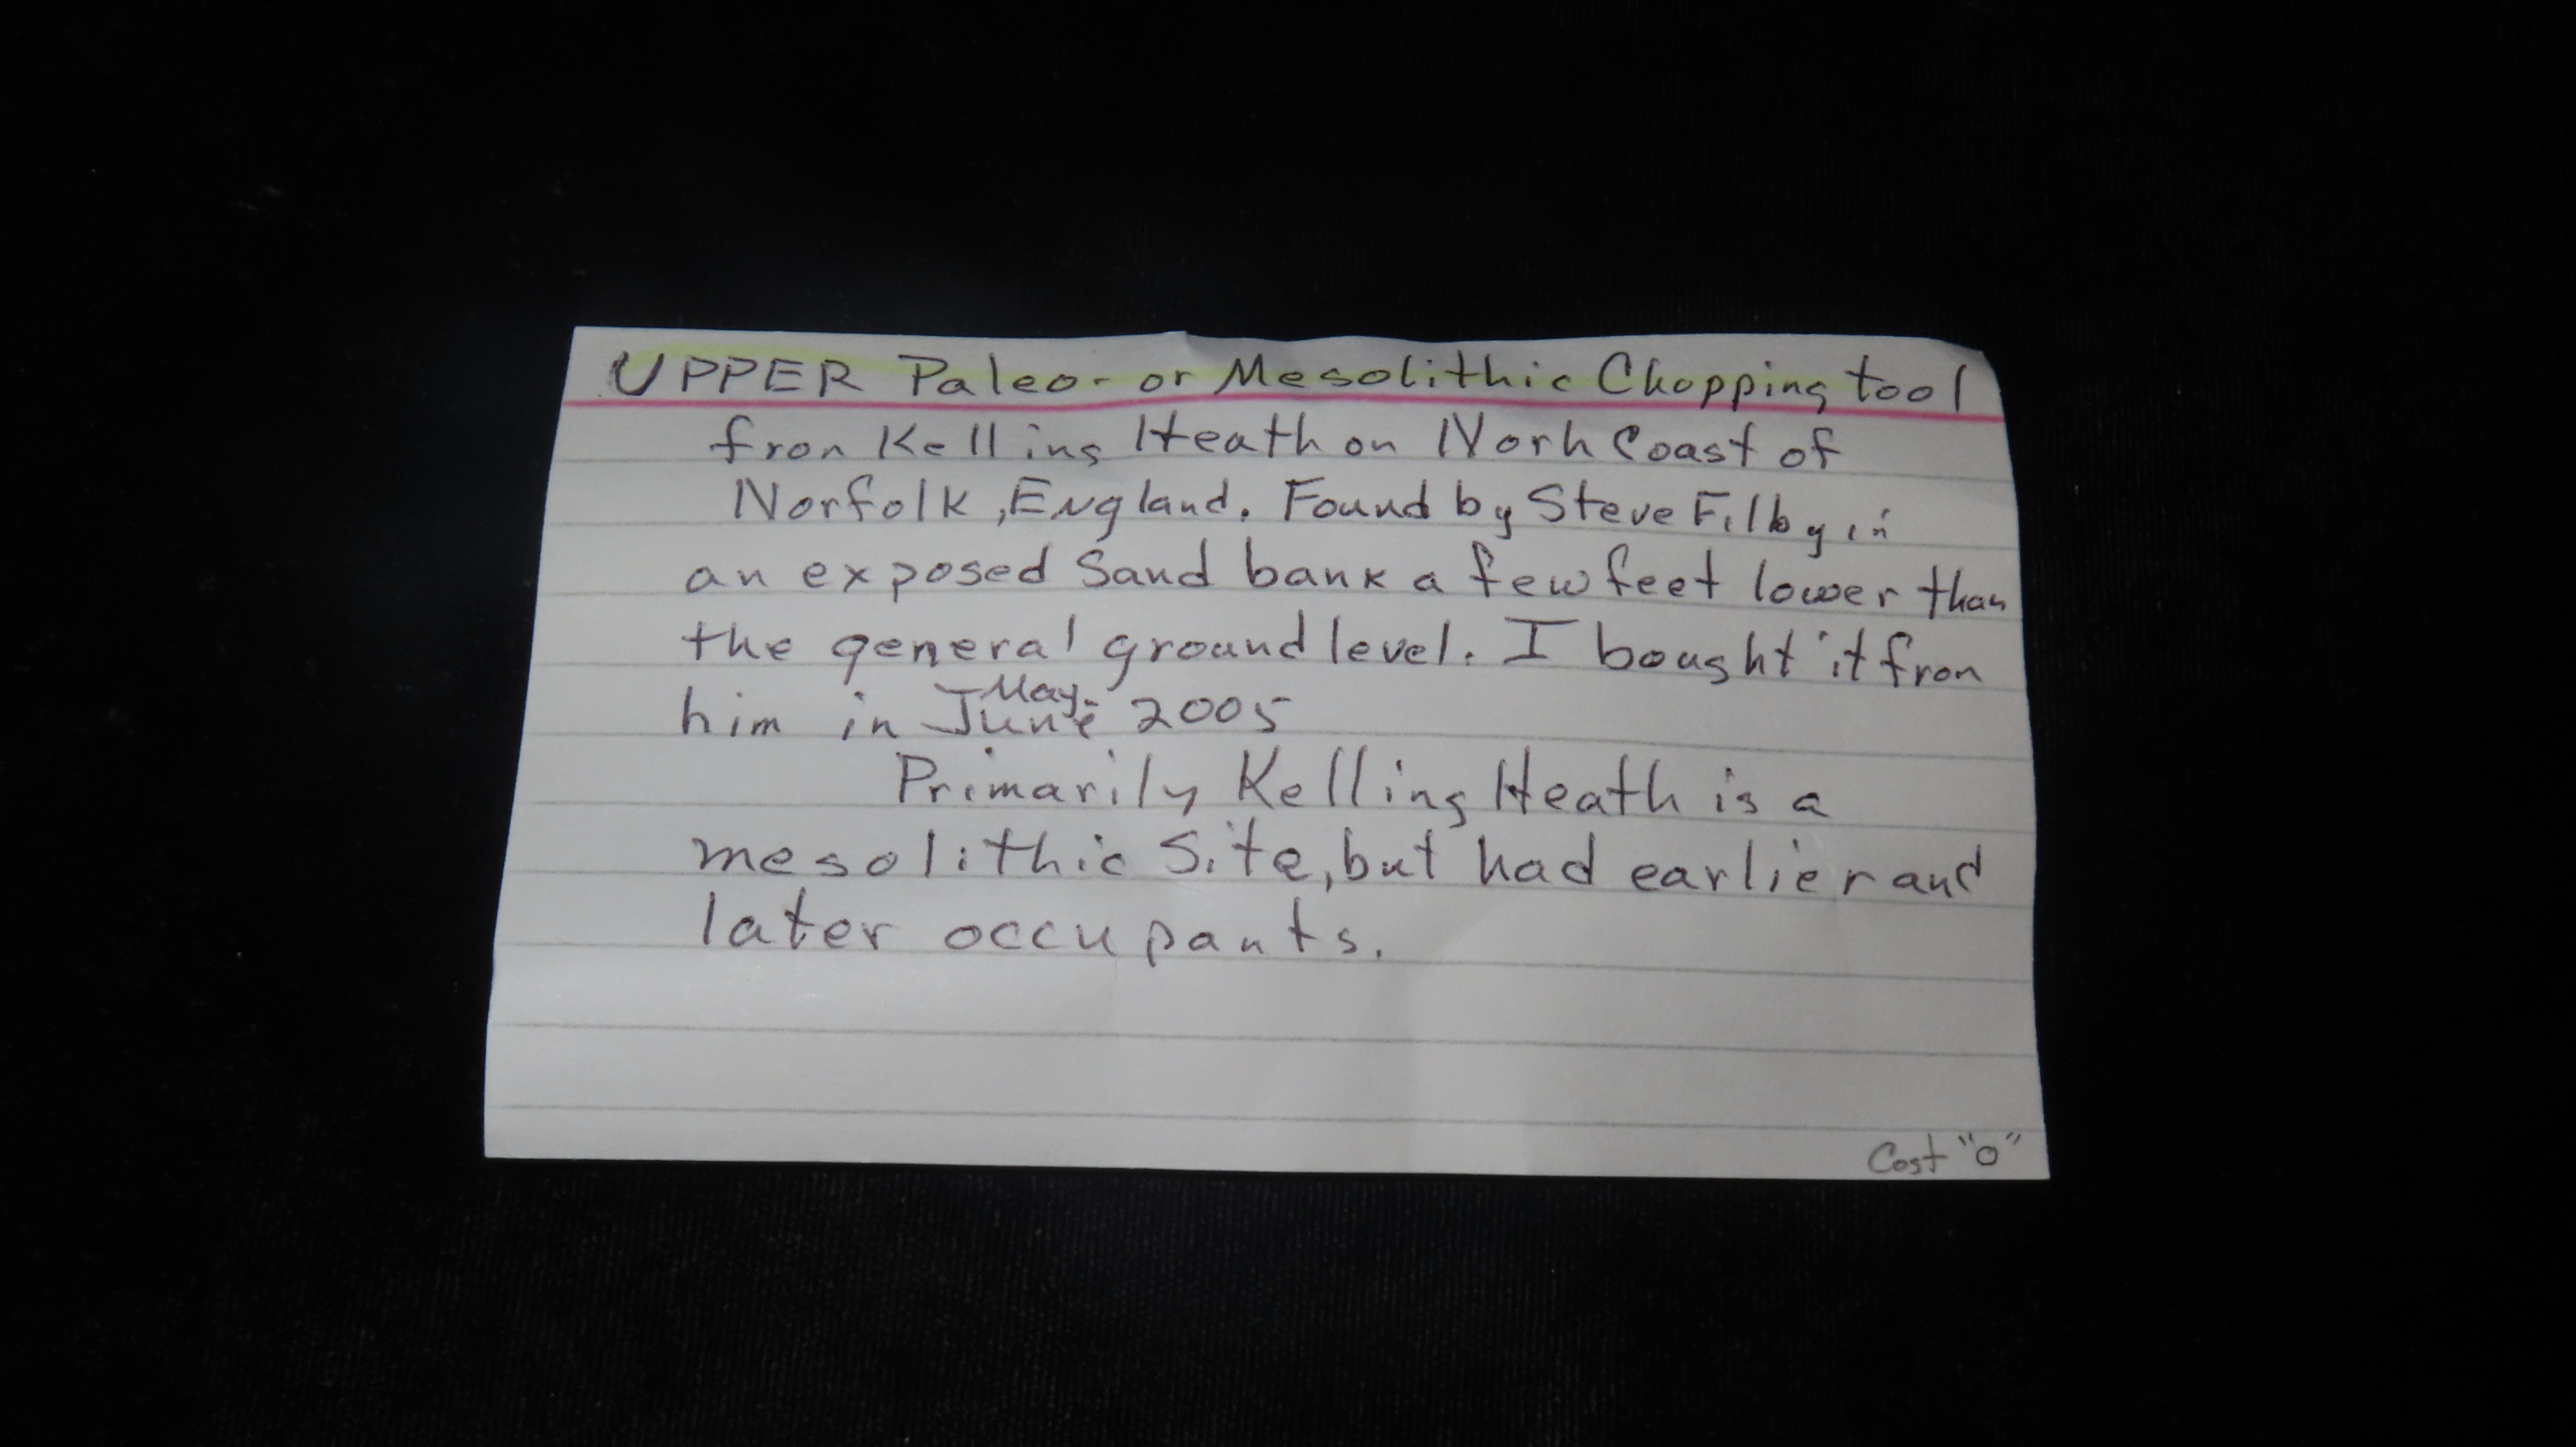 UPPER Paleo- or Mesolithic Chopping tool
fron Kelling Heath on Norh Coast of
Norfolk, England. Found by Steve Filby in
an exposed Sand bank a few feet lower than
the general ground level. I bought it fron
May-
him in June 2005
Primarily Kelling Heath is a
mesolithic Site, but had earlier and
later occupants.
Cost "0"